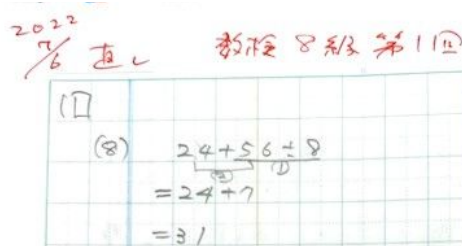 2022
7/6 直し 数検8級第11回
1
(8) 24+56÷8
② ①
=24+7
=31